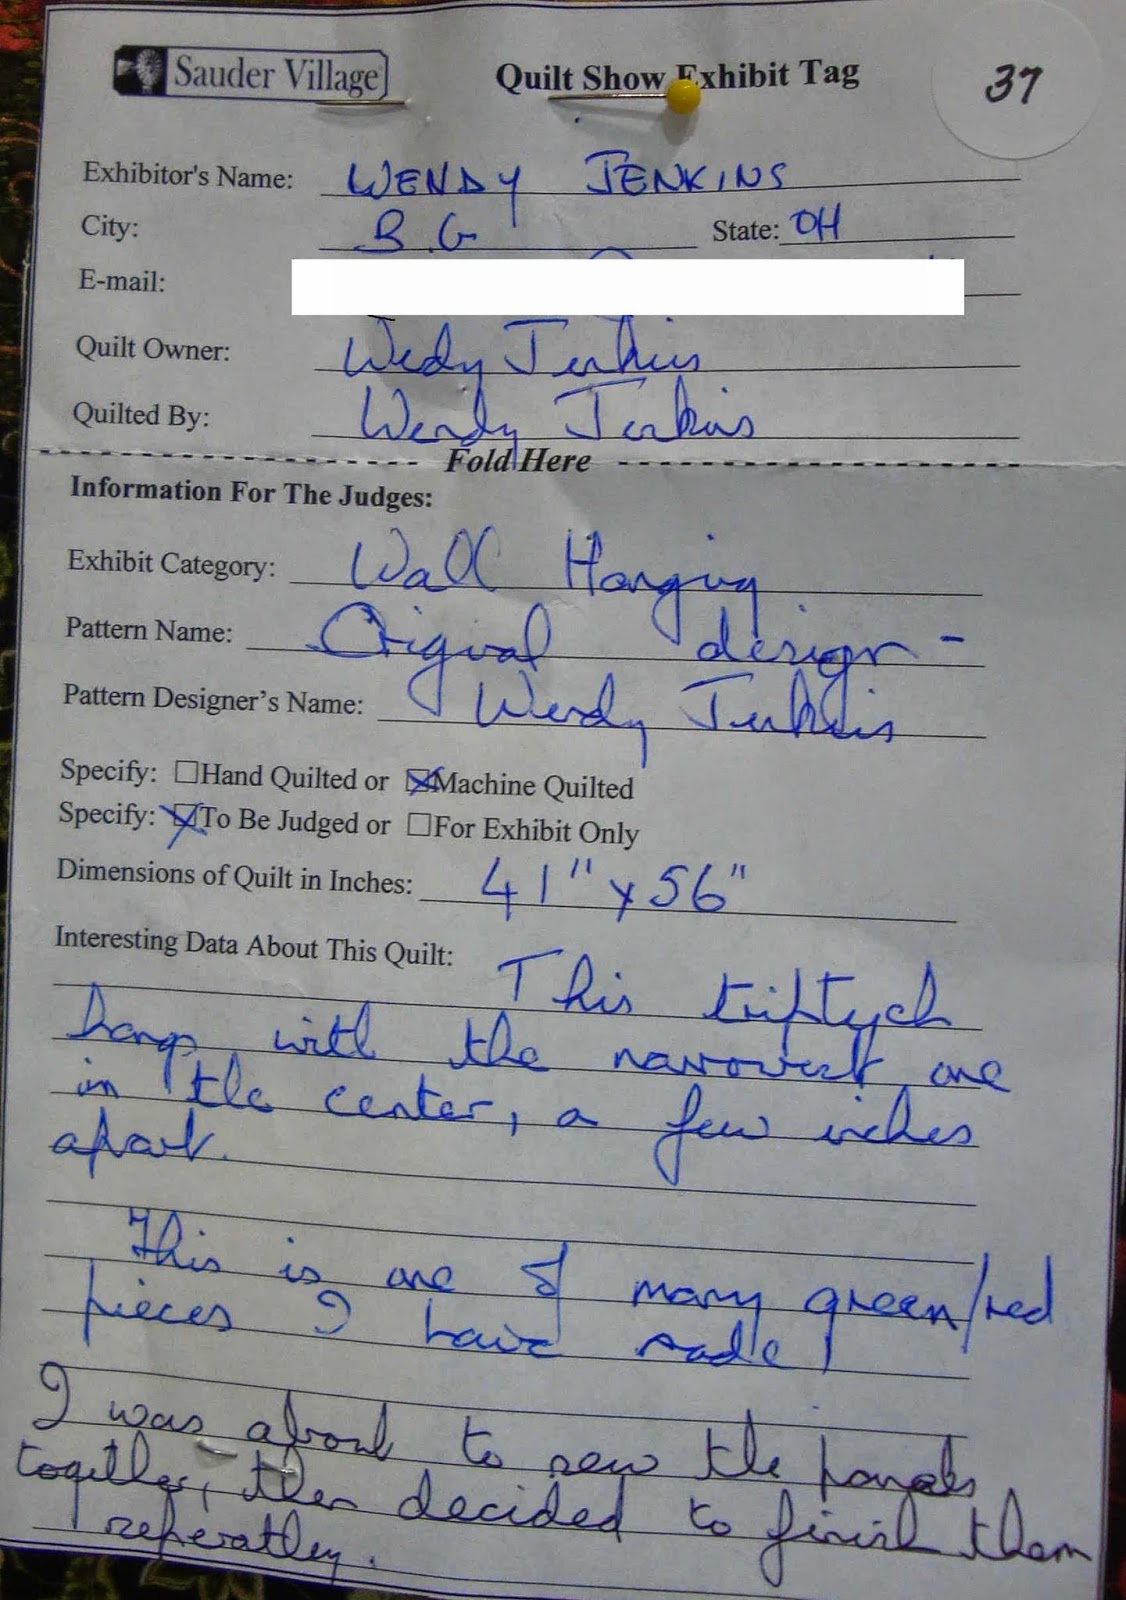 Sauder Village
Quilt Show Exhibit Tag
37
Exhibitor's Name: WENDY JENKINS
City: B.G State: OH
E-mail:
Quilt Owner: Wedy Jenkins
Quilted By: Wendy Jenkins
Fold Here
Information For The Judges:
Exhibit Category: Wall Hanging
Pattern Name: Original design -
Pattern Designer's Name: Wendy Jenkins
Specify: ☐Hand Quilted or ☒Machine Quilted
Specify: ☒To Be Judged or ☐For Exhibit Only
Dimensions of Quilt in Inches: 41" x 56"
Interesting Data About This Quilt: This triptych
hangs with the narrowest one
in the center, a few inches
apart.
This is one of many green/red
pieces I have made!
I was about to sew the panels
together, then decided to finish them
seperatley.